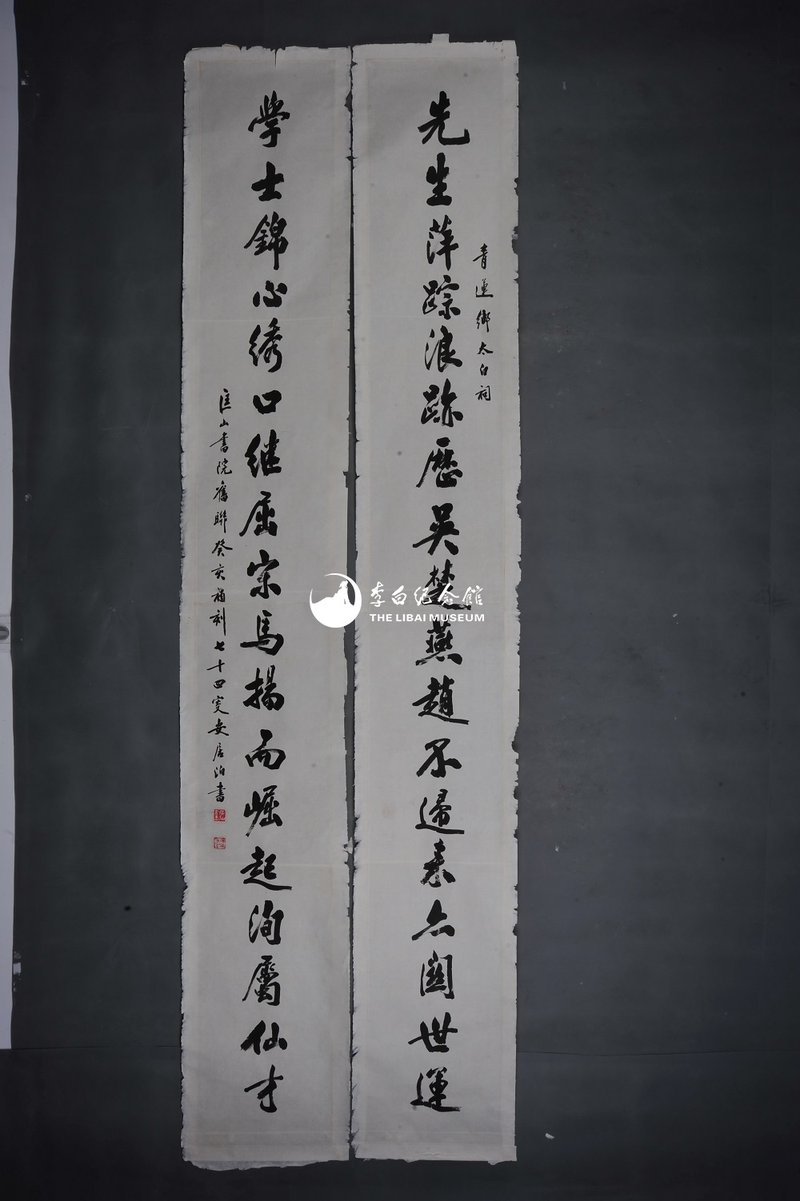 青蓮鄉太白祠
先生萍踪浪跡歷吳楚燕趙不歸來亦關世運
學士錦心綉口继屈宋馬揚而崛起洵屬仙才
匡山書院舊聯癸亥補刻七十四叟安居泊書
李白纪念館
THE LIBAI MUSEUM